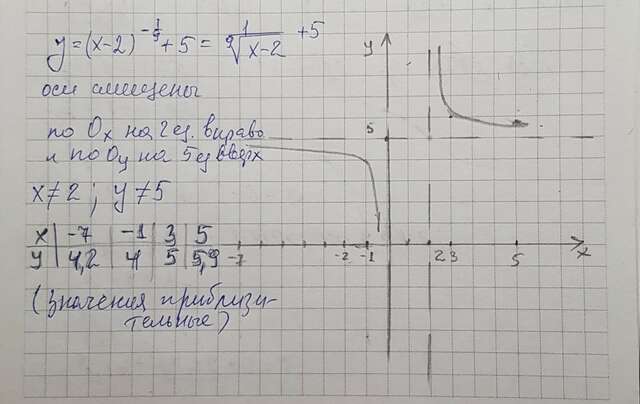 y=(x-2)^{-1/9}+5 = 1/⁹√(x-2) +5
оси смещены
по Ox на 2 ед. вправо
и по Oy на 5 ед вверх
x≠2 ; y≠5
x | -7 | -1 | 3 | 5
y | 4,2 | 4 | 5 | 5,9
(значения приблизи-
тельные)
y
5
-7 -2 -1 2 3 5 x